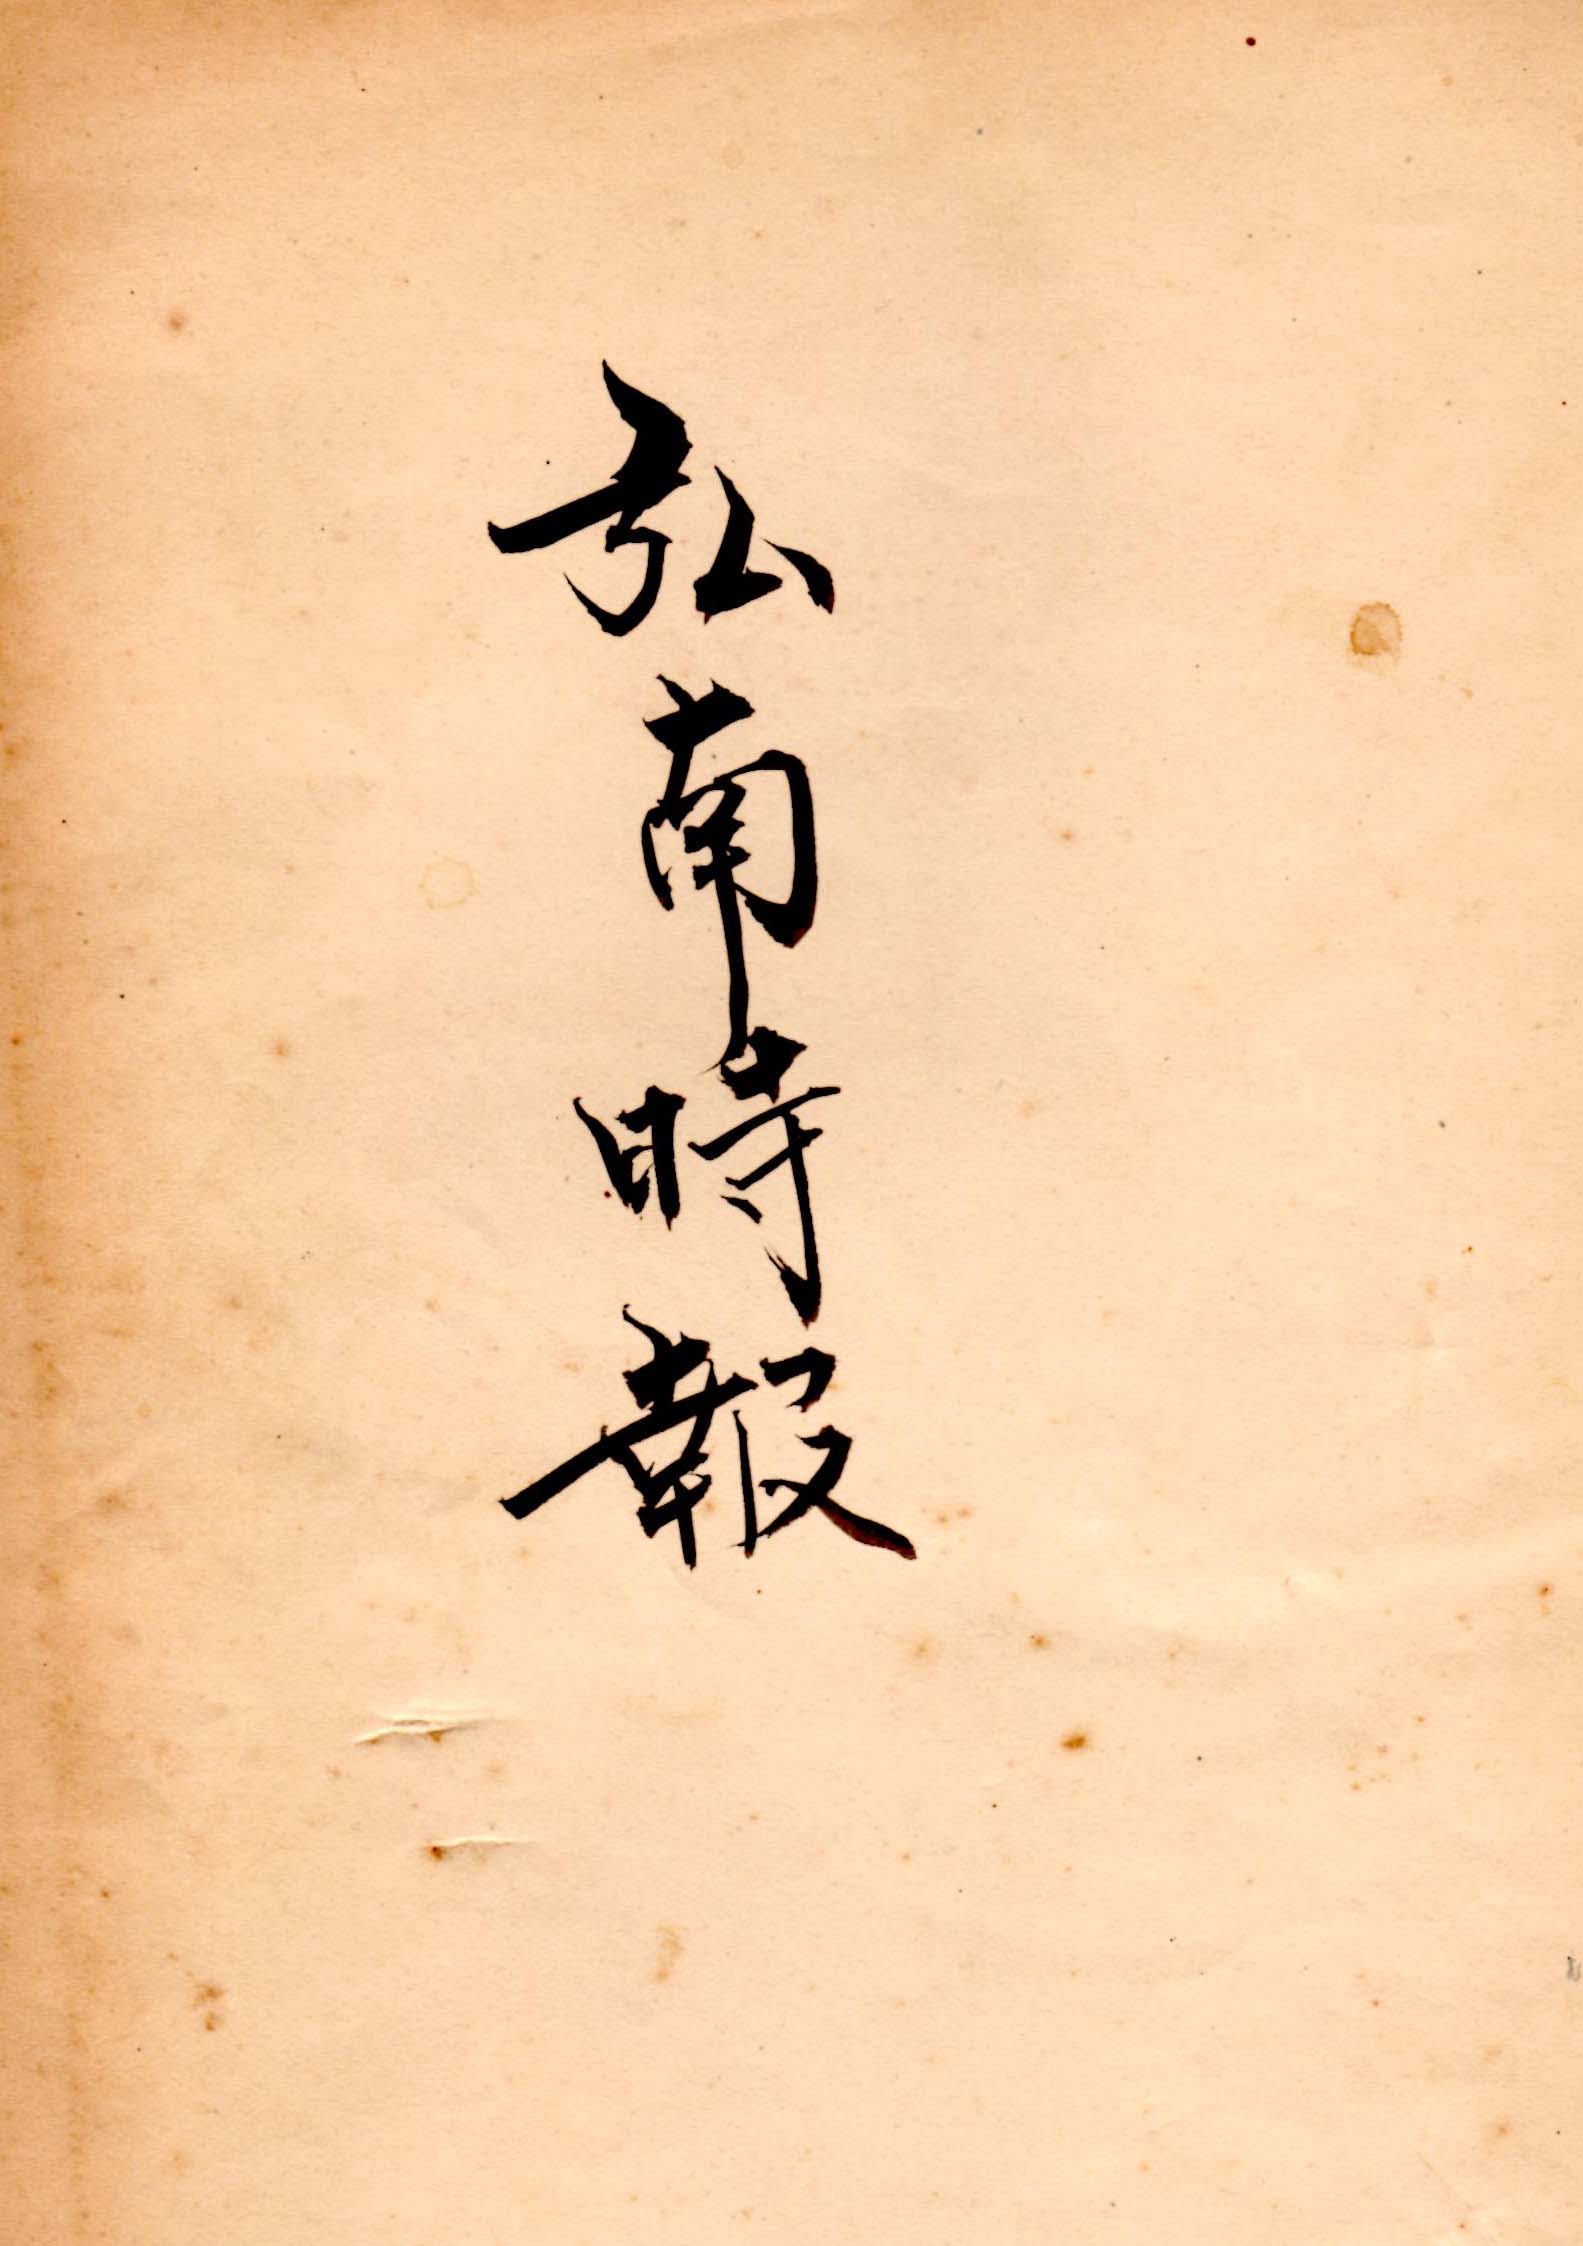 弘南時報